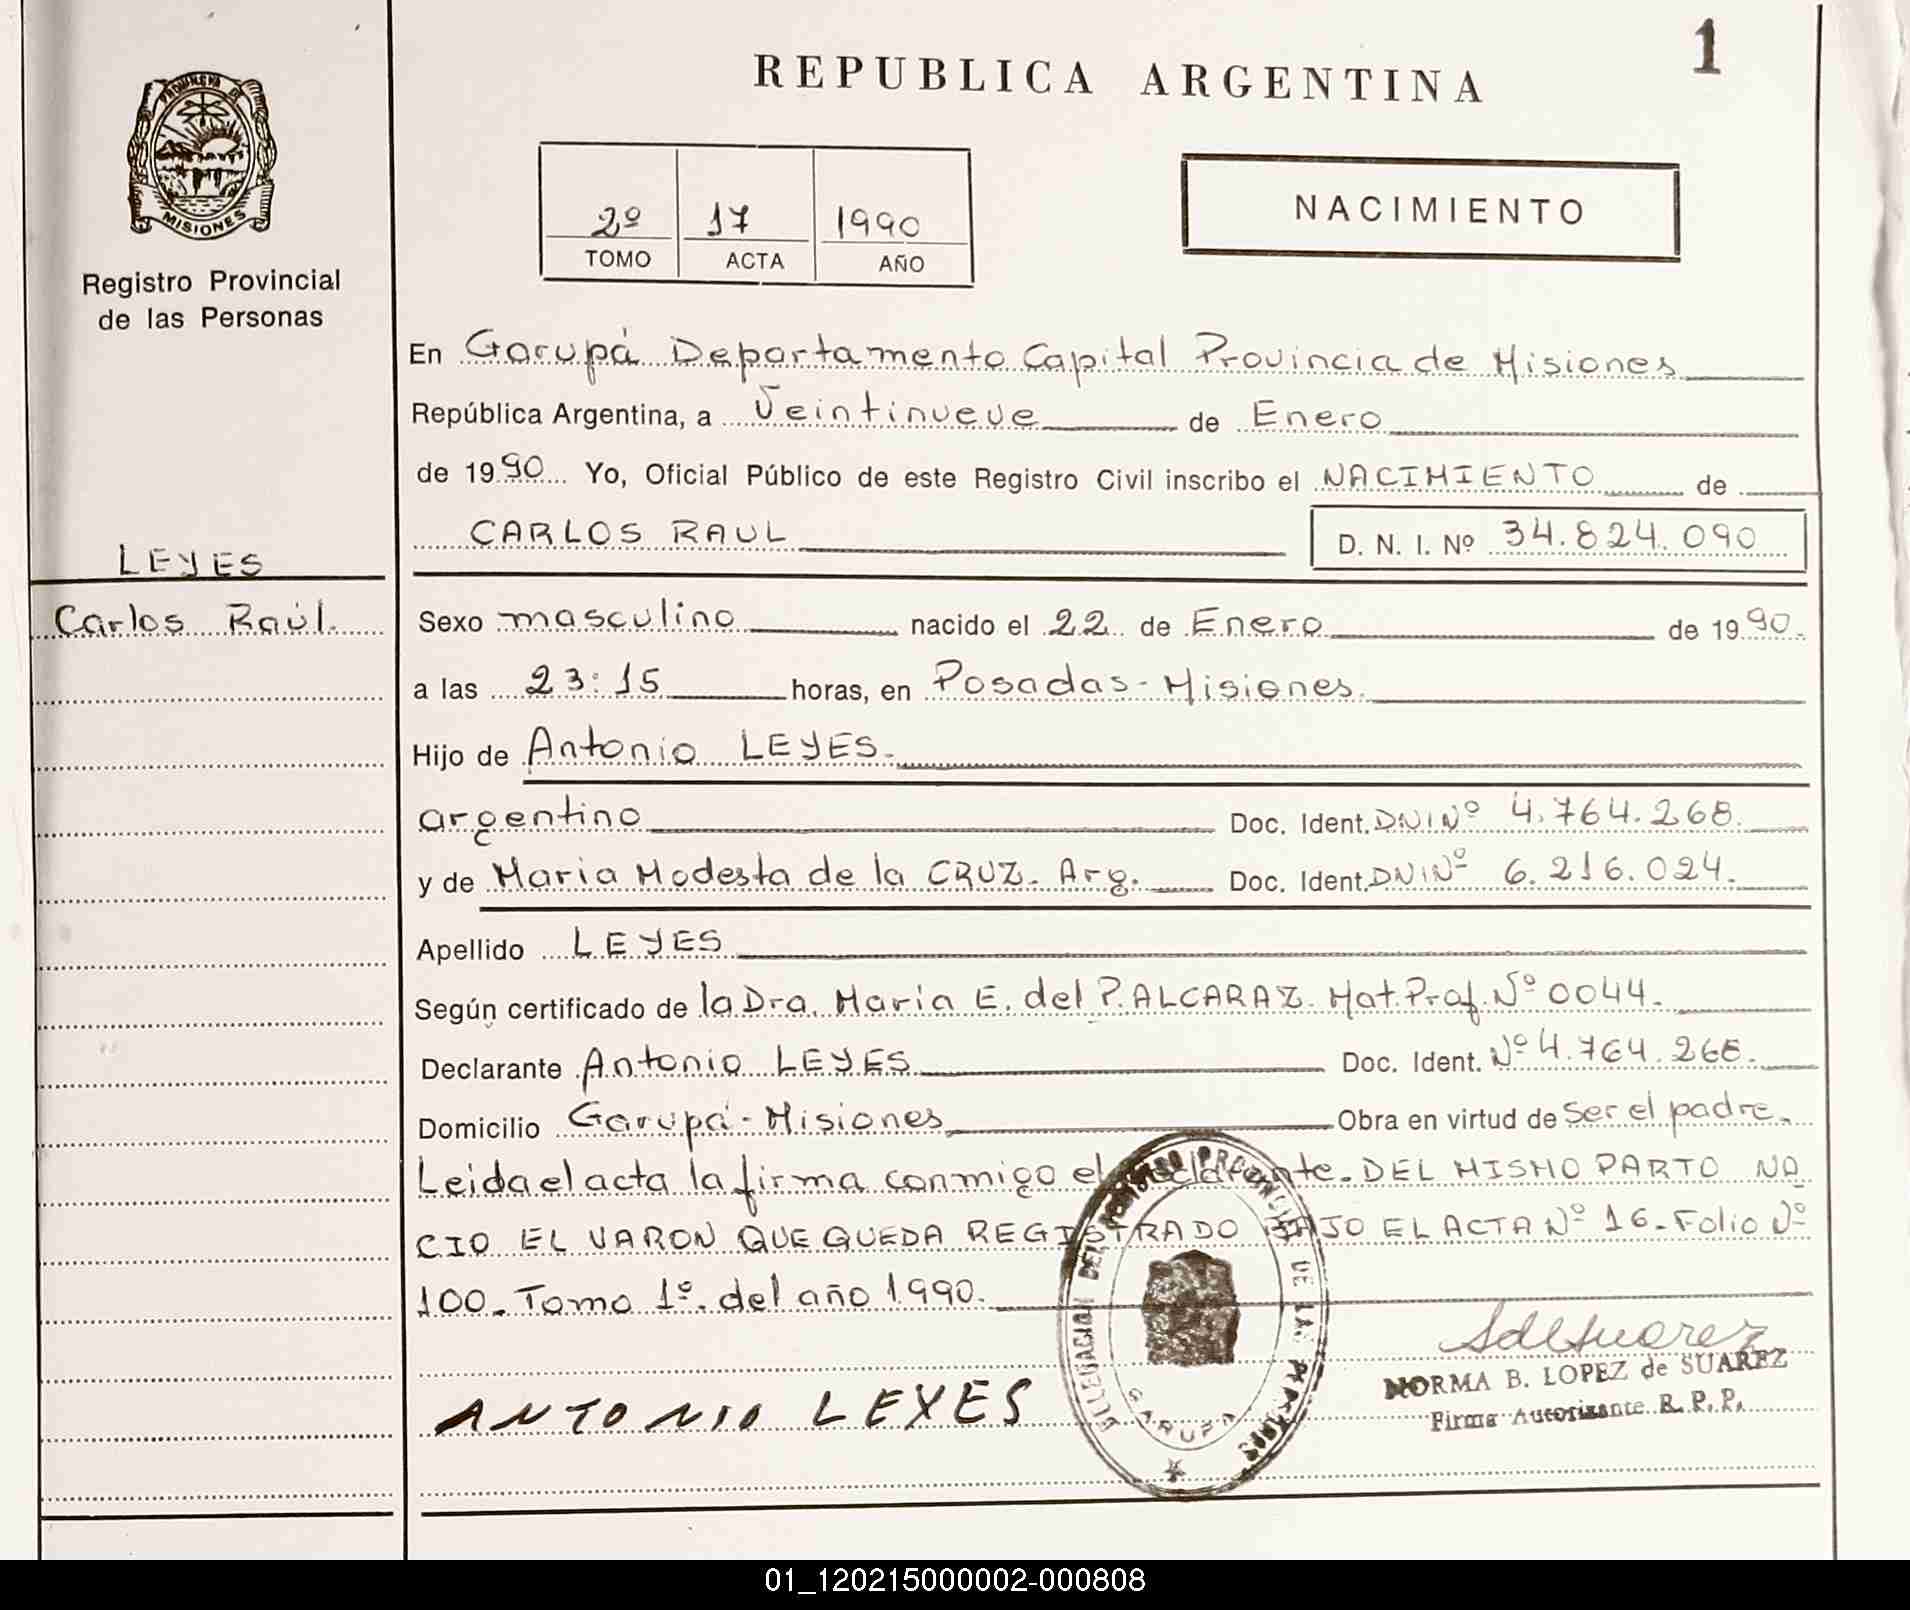 1
REPUBLICA ARGENTINA
PROVINCIA DE
MISIONES
Registro Provincial
de las Personas
2º 17 1990
TOMO ACTA AÑO
NACIMIENTO
En Garupá Departamento Capital Provincia de Misiones
República Argentina, a Veintinueve de Enero
de 1990 Yo, Oficial Público de este Registro Civil inscribo el NACIMIENTO de
CARLOS RAUL D. N. I. Nº 34.824.090
LEYES
Carlos Raúl.
Sexo masculino nacido el 22 de Enero de 1990.
a las 23:15 horas, en Posadas-Misiones.
Hijo de Antonio LEYES.
argentino Doc. Ident. DNI Nº 4.764.268.
y de Maria Modesta de la CRUZ. Arg. Doc. Ident. DNI Nº 6.216.024.
Apellido LEYES
Según certificado de la Dra. María E. del P. ALCARAZ. Mat. Prof. Nº 0044.
Declarante Antonio LEYES Doc. Ident. Nº 4.764.268.
Domicilio Garupá-Misiones Obra en virtud de ser el padre.
Leida el acta la firma conmigo el declarante. DEL MISMO PARTO NA
CIO EL VARON QUE QUEDA REGISTRADO BAJO EL ACTA Nº 16-Folio Nº
100. Tomo 1º. del año 1990.
DELEGACION DEL REGISTRO PROVINCIAL DE LAS PERSONAS
GARUPA
NORMA B. LOPEZ de SUAREZ
Firma Autorizante R. P. P.
ANTONIO LEYES
01_120215000002-000808